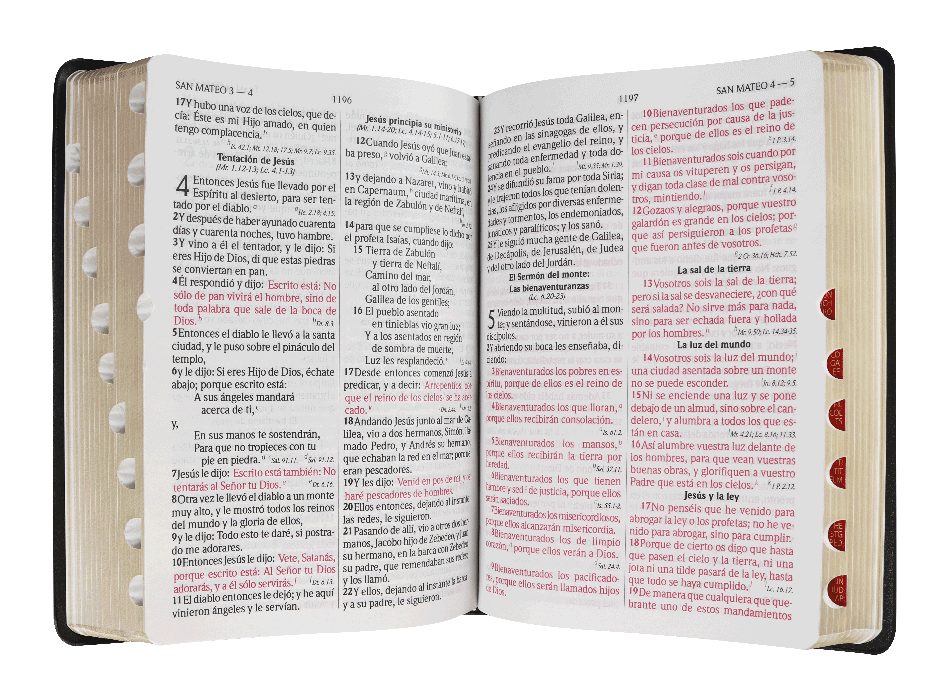 SAN MATEO 3 — 4
1196
17Y hubo una voz de los cielos, que de-
cía: Éste es mi Hijo amado, en quien
tengo complacencia.
Is. 42.1; Mt. 12.18; 17.5; Mr. 9.7; Lc. 9.35.
Tentación de Jesús
(Mr. 1.12-13; Lc. 4.1-13)
4 Entonces Jesús fue llevado por el
Espíritu al desierto, para ser ten-
tado por el diablo.
He. 2.18; 4.15.
2Y después de haber ayunado cuarenta
días y cuarenta noches, tuvo hambre.
3Y vino a él el tentador, y le dijo: Si
eres Hijo de Dios, di que estas piedras
se conviertan en pan.
4Él respondió y dijo: Escrito está: No
sólo de pan vivirá el hombre, sino de
toda palabra que sale de la boca de
Dios.
Dt. 8.3.
5Entonces el diablo le llevó a la santa
ciudad, y le puso sobre el pináculo del
templo,
6y le dijo: Si eres Hijo de Dios, échate
abajo; porque escrito está:
A sus ángeles mandará
acerca de ti,
y,
En sus manos te sostendrán,
Para que no tropieces con tu
pie en piedra.
Sal. 91.11. Sal. 91.12.
7Jesús le dijo: Escrito está también: No
tentarás al Señor tu Dios.
Dt. 6.16.
8Otra vez le llevó el diablo a un monte
muy alto, y le mostró todos los reinos
del mundo y la gloria de ellos,
9y le dijo: Todo esto te daré, si postra-
do me adorares.
10Entonces Jesús le dijo: Vete, Satanás,
porque escrito está: Al Señor tu Dios
adorarás, y a él sólo servirás.
Dt. 6.13.
11El diablo entonces le dejó; y he aquí
vinieron ángeles y le servían.
Jesús principia su ministerio
(Mr. 1.14-20; Lc. 4.14-15; 5.1-11; 6.17-19)
12Cuando Jesús oyó que Juan estaba
ba preso, volvió a Galilea;
13y dejando a Nazaret, vino y habitó
en Capernaum, ciudad marítima, en
la región de Zabulón y de Neftalí,
14para que se cumpliese lo dicho por
el profeta Isaías, cuando dijo:
15 Tierra de Zabulón
y tierra de Neftalí,
Camino del mar,
al otro lado del Jordán,
Galilea de los gentiles;
16 El pueblo asentado
en tinieblas vio gran luz;
Y a los asentados en región
de sombra de muerte,
Luz les resplandeció.
17Desde entonces comenzó Jesús a
predicar, y a decir: Arrepentíos, porque
que el reino de los cielos se ha acer-
cado.
18Andando Jesús junto al mar de Ga-
lilea, vio a dos hermanos, Simón, lla-
mado Pedro, y Andrés su hermano,
que echaban la red en el mar; porque
eran pescadores.
19Y les dijo: Venid en pos de mí, y os
haré pescadores de hombres.
20Ellos entonces, dejando al instante
las redes, le siguieron.
21Pasando de allí, vio a otros dos her-
manos, Jacobo hijo de Zebedeo, y Juan
su hermano, en la barca con Zebedeo
su padre, que remendaban sus redes;
y los llamó.
22Y ellos, dejando al instante la barca
y a su padre, le siguieron.
1197
SAN MATEO 4 — 5
23Y recorrió Jesús toda Galilea, en-
señando en las sinagogas de ellos, y
predicando el evangelio del reino, y
sanando toda enfermedad y toda do-
lencia en el pueblo.
Mt. 9.35; Mr. 1.39.
24Y se difundió su fama por toda Siria;
y le trajeron todos los que tenían dolen-
cias, los afligidos por diversas enferme-
dades y tormentos, los endemoniados,
lunáticos y paralíticos; y los sanó.
25Y le siguió mucha gente de Galilea,
de Decápolis, de Jerusalén, de Judea
y del otro lado del Jordán.
El Sermón del monte:
Las bienaventuranzas
(Lc. 6.20-23)
5 Viendo la multitud, subió al mon-
te; y sentándose, vinieron a él sus
discípulos.
2Y abriendo su boca les enseñaba, di-
ciendo:
3Bienaventurados los pobres en es-
píritu, porque de ellos es el reino de
los cielos.
4Bienaventurados los que lloran,
porque ellos recibirán consolación.
Is. 61.2.
5Bienaventurados los mansos,
porque ellos recibirán la tierra por
heredad.
Sal. 37.11.
6Bienaventurados los que tienen
hambre y sed de justicia, porque ellos
serán saciados.
Is. 55.1-2.
7Bienaventurados los misericordiosos,
porque ellos alcanzarán misericordia.
8Bienaventurados los de limpio
corazón, porque ellos verán a Dios.
Sal. 24.4.
9Bienaventurados los pacificado-
res, porque ellos serán llamados hijos
de Dios.
10Bienaventurados los que pade-
cen persecución por causa de la jus-
ticia, porque de ellos es el reino de
los cielos.
1 P. 3.14.
11Bienaventurados sois cuando por
mi causa os vituperen y os persigan,
y digan toda clase de mal contra voso-
tros, mintiendo.
1 P. 4.14.
12Gozaos y alegraos, porque vuestro
galardón es grande en los cielos; por-
que así persiguieron a los profetas
que fueron antes de vosotros.
2 Cr. 36.16; Hch. 7.52.
La sal de la tierra
13Vosotros sois la sal de la tierra;
pero si la sal se desvaneciere, ¿con qué
será salada? No sirve más para nada,
sino para ser echada fuera y hollada
por los hombres.
Mr. 9.50; Lc. 14.34-35.
La luz del mundo
14Vosotros sois la luz del mundo;
una ciudad asentada sobre un monte
no se puede esconder.
Jn. 8.12; 9.5.
15Ni se enciende una luz y se pone
debajo de un almud, sino sobre el can-
delero, y alumbra a todos los que es-
tán en casa.
Mr. 4.21; Lc. 8.16; 11.33.
16Así alumbre vuestra luz delante de
los hombres, para que vean vuestras
buenas obras, y glorifiquen a vuestro
Padre que está en los cielos.
1 P. 2.12.
Jesús y la ley
17No penséis que he venido para
abrogar la ley o los profetas; no he ve-
nido para abrogar, sino para cumplir.
18Porque de cierto os digo que hasta
que pasen el cielo y la tierra, ni una
jota ni una tilde pasará de la ley, hasta
que todo se haya cumplido.
Lc. 16.17.
19De manera que cualquiera que que-
brante uno de estos mandamientos